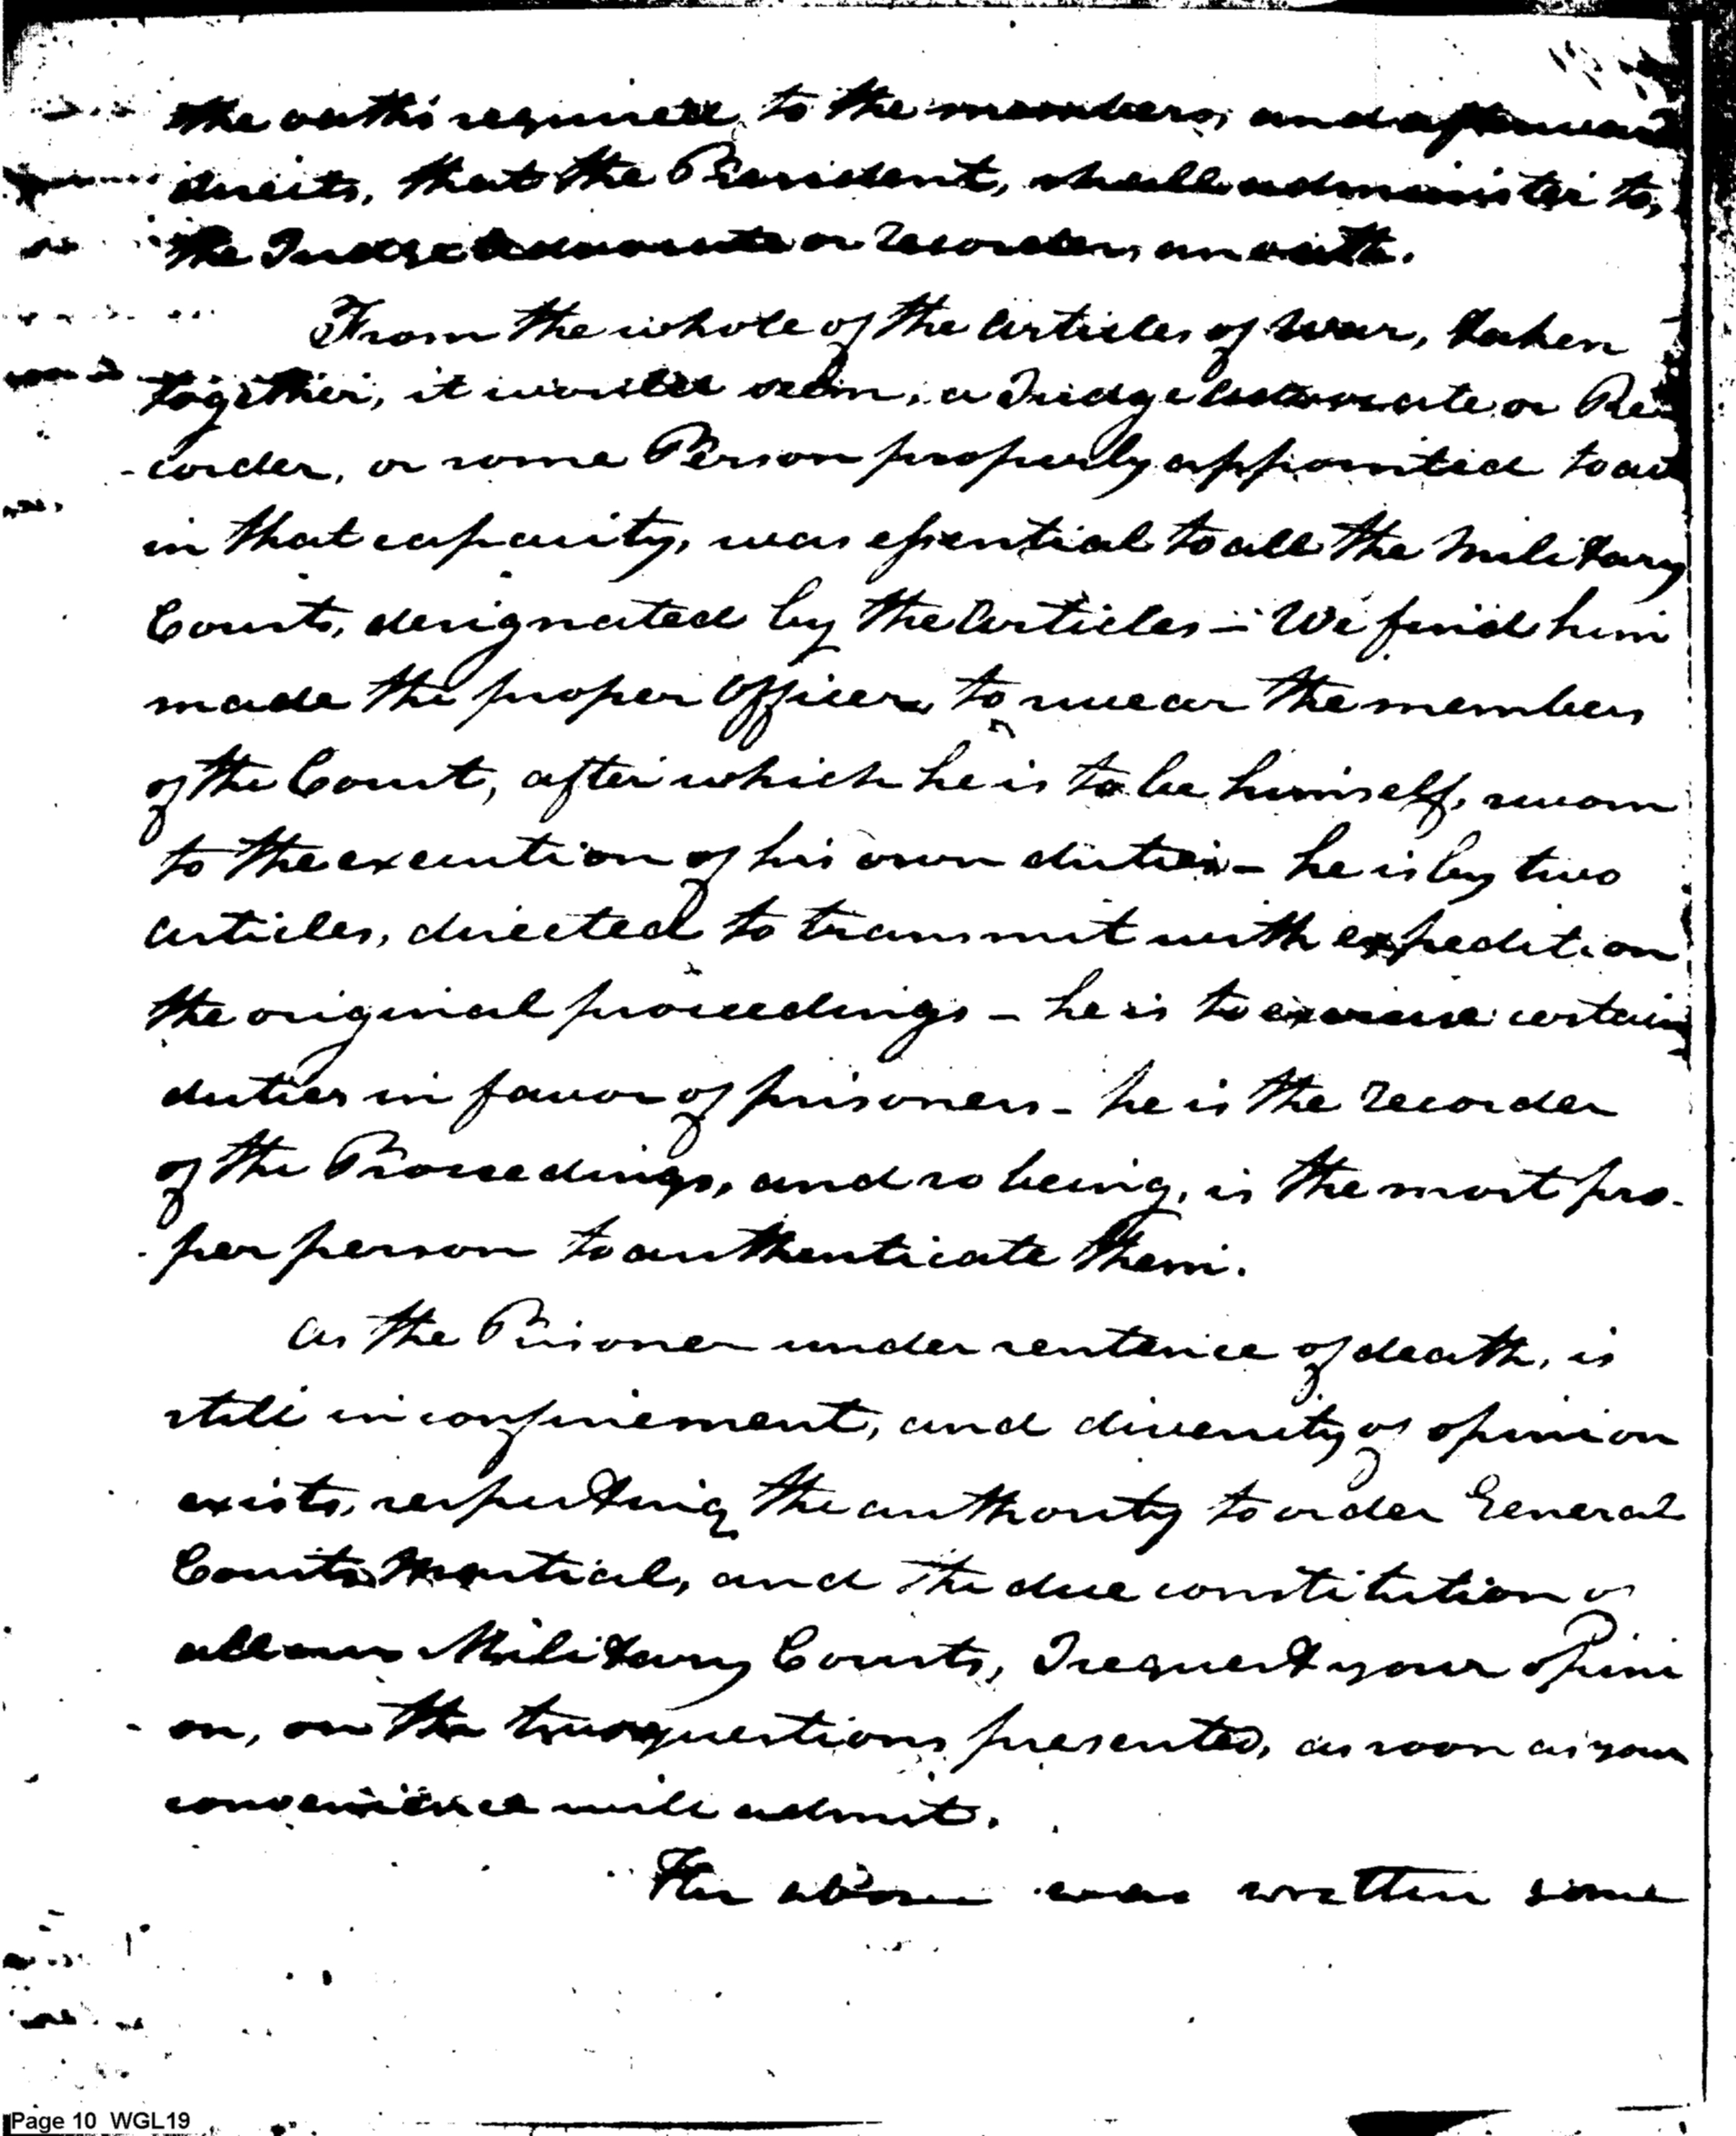 the oaths required, to the members, and afterward
directs, that the President, shall administer to,
the Judge Advocate or recorder, an oath.
From the whole of the articles of war, taken
together, it would seem, a Judge advocate or Re
-corder, or some Person properly appointed to act
in that capacity, was essential to all the Military
Courts, designated by the articles - We find him
made the proper Officer, to swear the members
of the Court, after which he is to be himself, sworn
to the execution of his own duties - he is by two
articles, directed to transmit with expedition
the original proceedings - he is to exercise certain
duties in favor of prisoners - he is the recorder
of the Proceedings, and so being, is the most pro-
-per person to authenticate them.
As the Prisoner under sentence of death, is
still in confinement, and diversity of opinion
exists, respecting the authority to order General
Courts Martial, and the due constitution of
all our Military Courts, I request your opini
-on, on the two questions presented, as soon as your
convenience will admit.
The above was written some
Page 10 WGL19